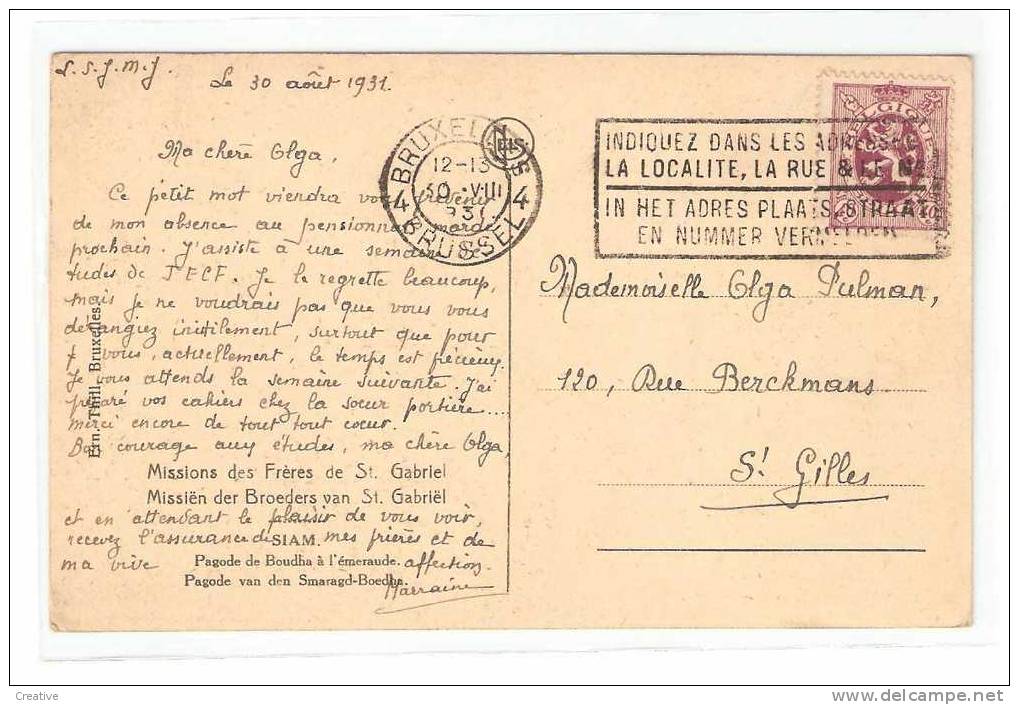 L.S.J.M.J.
Le 30 août 1931.
Ma chère Olga,
Ce petit mot viendra vous prévenir
de mon absence au pensionnat mardi
prochain. J'assiste à une semaine d'é-
tudes de JECF. Je le regrette beaucoup,
mais je ne voudrais pas que vous vous
dérangiez inutilement, surtout que pour
vous, actuellement, le temps est précieux.
Je vous attends la semaine suivante. J'ai
préparé vos cahiers chez la soeur portière....
merci encore de tout tout coeur.
Bon courage aux études, ma chère Olga,
Missions des Frères de St. Gabriel
Missiën der Broeders van St. Gabriël
et en attendant le plaisir de vous voir,
recevez l'assurance de mes prières et de
SIAM.
ma vive affection.
Pagode de Boudha à l'émeraude.
Pagode van den Smaragd-Boedha.
Marraine
Ern. Thill, Bruxelles
NELS
4 BRUXELLES 4
12-13
30 VIII
1931
BRUSSEL
INDIQUEZ DANS LES ADRESSES
LA LOCALITE, LA RUE & LE Nº
IN HET ADRES PLAATS, STRAAT
EN NUMMER VERMELDEN
BELGIQUE
Mademoiselle Olga Pulman,
120, Rue Berckmans
St Gilles
Creative
http://www.delcampe.net